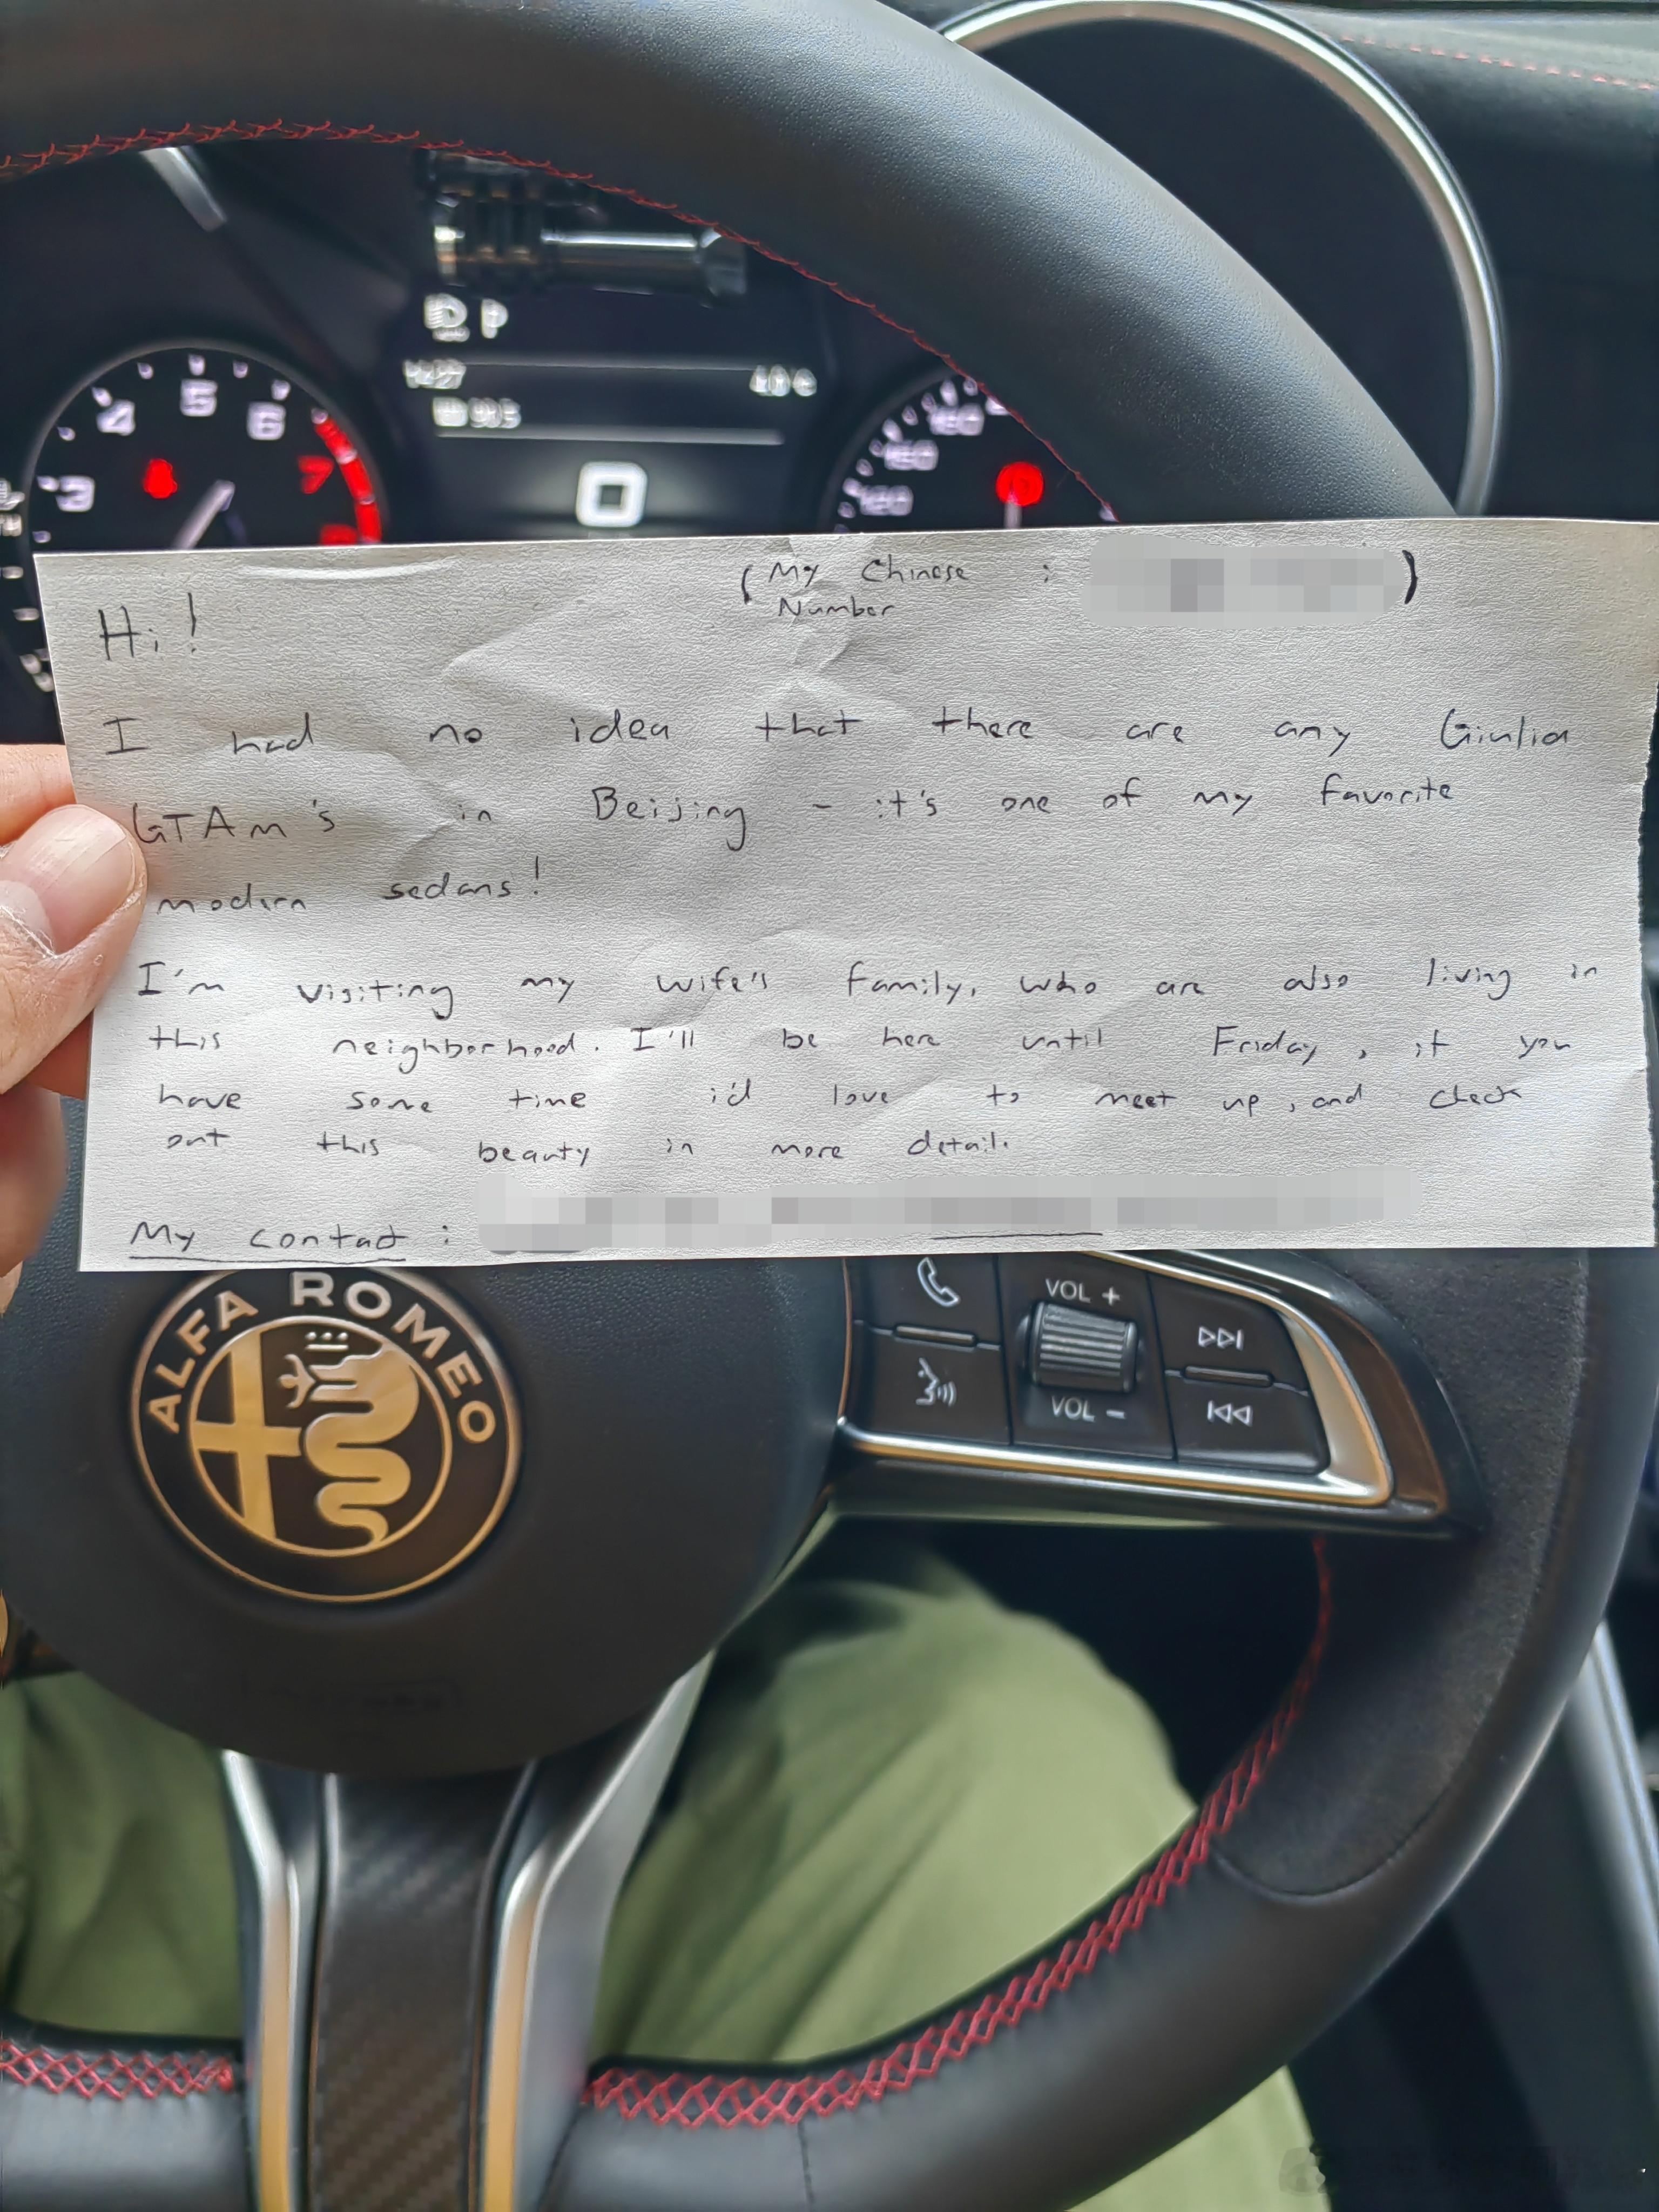 P
0
3
4
5
6
7
(My Chinese :
Number )
Hi!
I had no idea that there are any Giulia
GTAm's in Beijing - it's one of my favorite
modern sedans!
I'm visiting my wife's family, who are also living in
this neighborhood. I'll be here until Friday, if you
have some time i'd love to meet up, and check
out this beauty in more detail.
My contact :
ALFA ROMEO
VOL +
VOL −